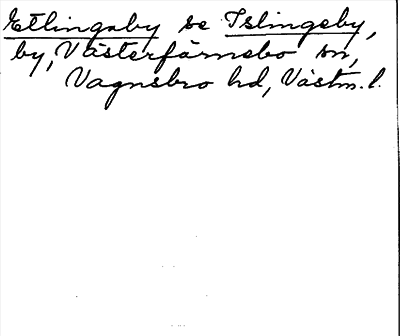 Etlingsby se Islingsby,
by, Västerfärnebo sn,
Vagnsbro hd, Västm. l.